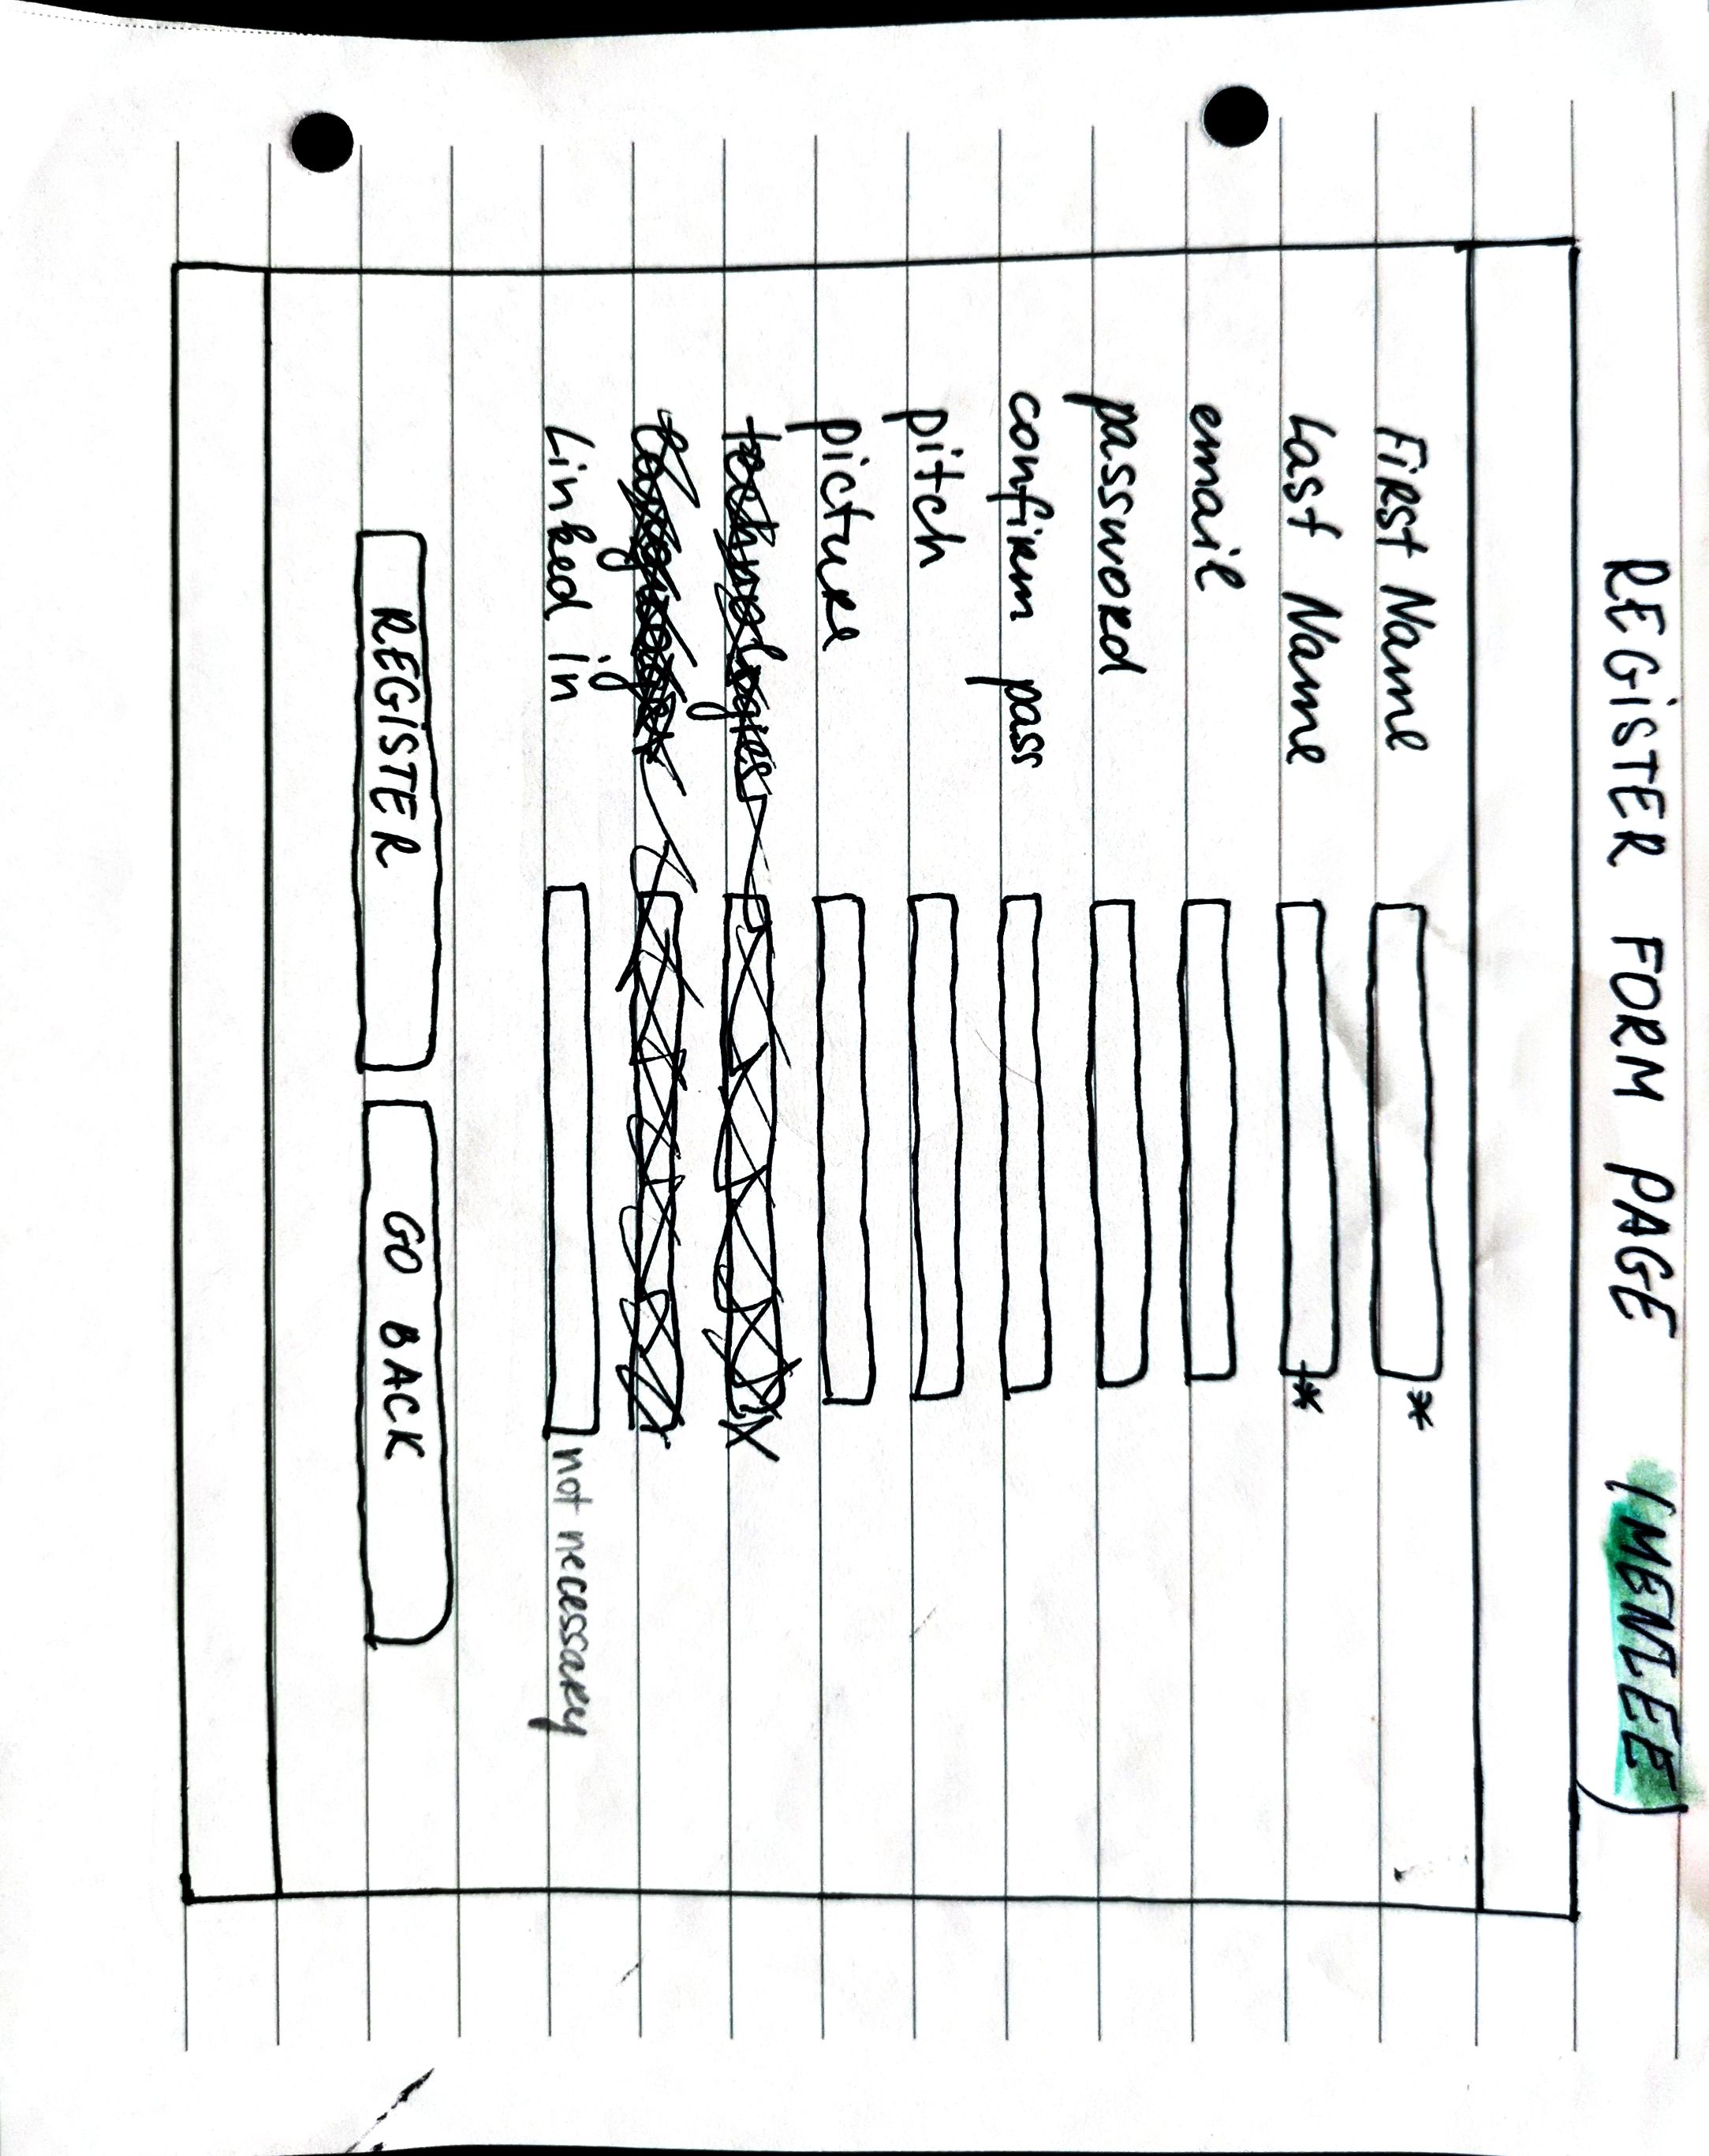 REGISTER FORM PAGE (MENTEE)
First Name *
Last Name *
email
password
confirm pass
pitch
picture
technologies
Linked in not necessary
REGISTER GO BACK